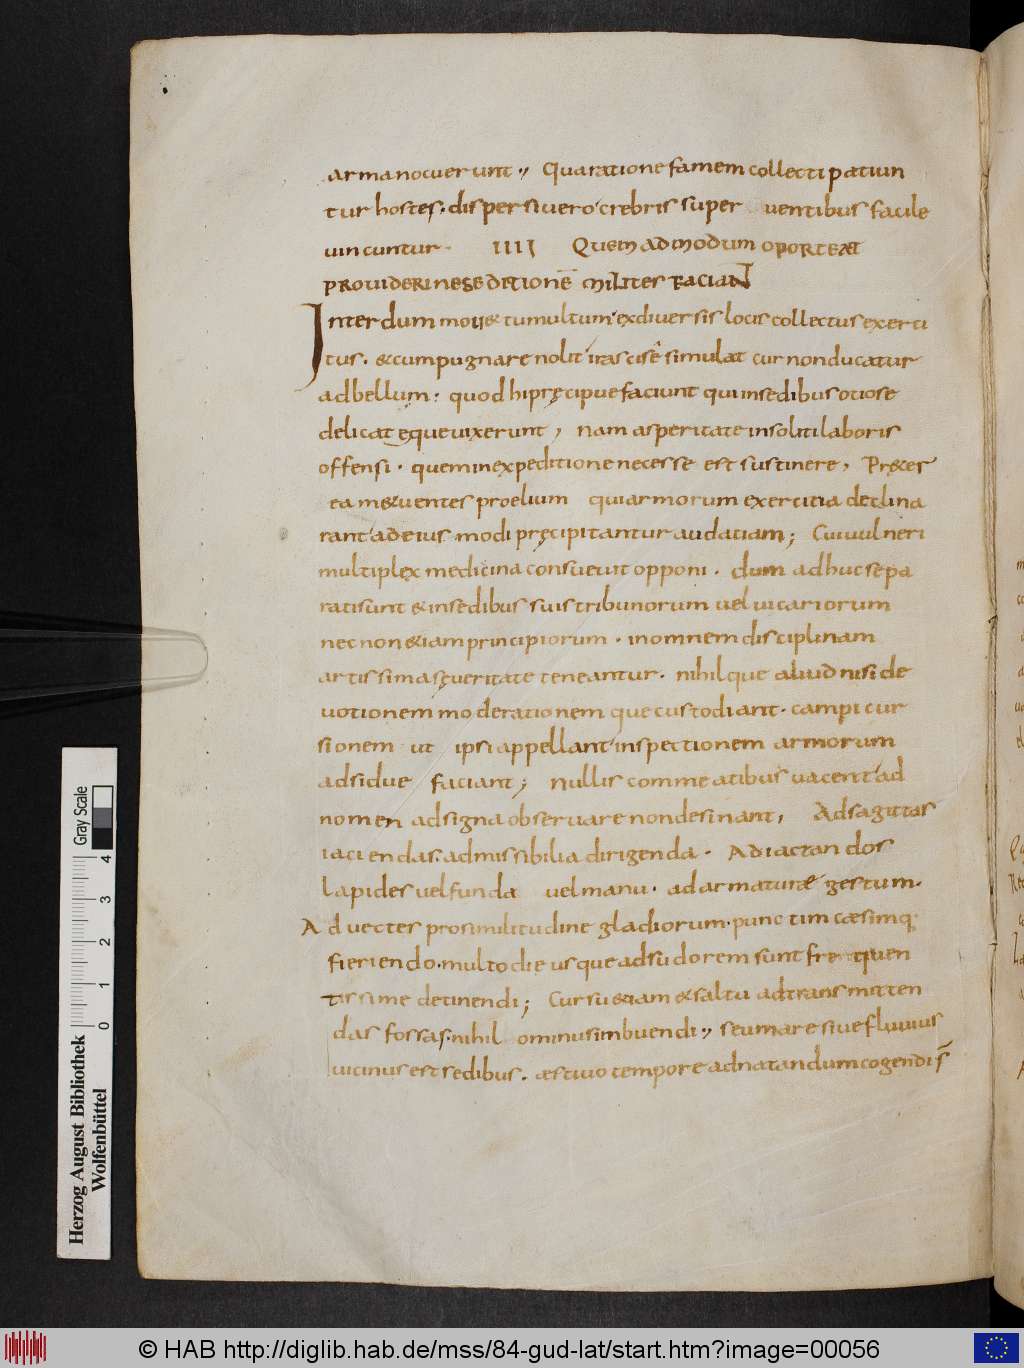 arma nocuerunt;, Qua ratione famem collecti patiun
tur hostes. dispersi vero crebris super ventibus facile
vincuntur. IIII Quemadmodum oporteat
provideri ne seditionē milites faciant
Interdum movet tumultum ex diversis locis collectus exerci
tus. et cum pugnare nolit irascise simulat cur non ducatur
ad bellum: quod hi pręcipue faciunt qui in sedibus otiose
delicatęque vixerunt, nam asperitate insoliti laboris
offensi. quem in expeditione necesse est sustinere, Pręter
ea metuentes proelium qui armorum exercitia declina
rant ad eius modi pręcipitantur audaciam; Cui vulneri
multiplex medicina consuevit opponi. dum adhuc sepa
rati sunt et in sedibus suis tribunorum vel vicariorum
nec non etiam principiorum. in omnem disciplinam
artissima sęveritate teneantur. nihilque aliud nisi de
votionem moderationem que custodiant. campi cur
sionem ut ipsi appellant inspectionem armorum
adsidue faciant; nullis commeatibus vacent ad
nomen ad signa observare non desinant, Ad sagittas
iaciendas. ad missibilia dirigenda. Ad iactandos
lapides vel funda vel manu. ad armaturæ gestum.
Ad vectes pro similitudine gladiorum. punctim cæsimq;
fieriendo. multo die usque ad sudorem sunt frequen
tissime detinendi; Cursu etiam et saltu ad transmitten
das fossas. nihil ominus imbuendi;, seu mare sive fluvius
vicinus est sedibus. æstivo tempore ad natandum cogendi s̄
Herzog August Bibliothek
Wolfenbüttel
0 1 2 3 4
Gray Scale
© HAB http://diglib.hab.de/mss/84-gud-lat/start.htm?image=00056